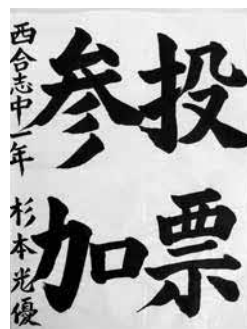 投票
参加
西合志中一年 杉本光優